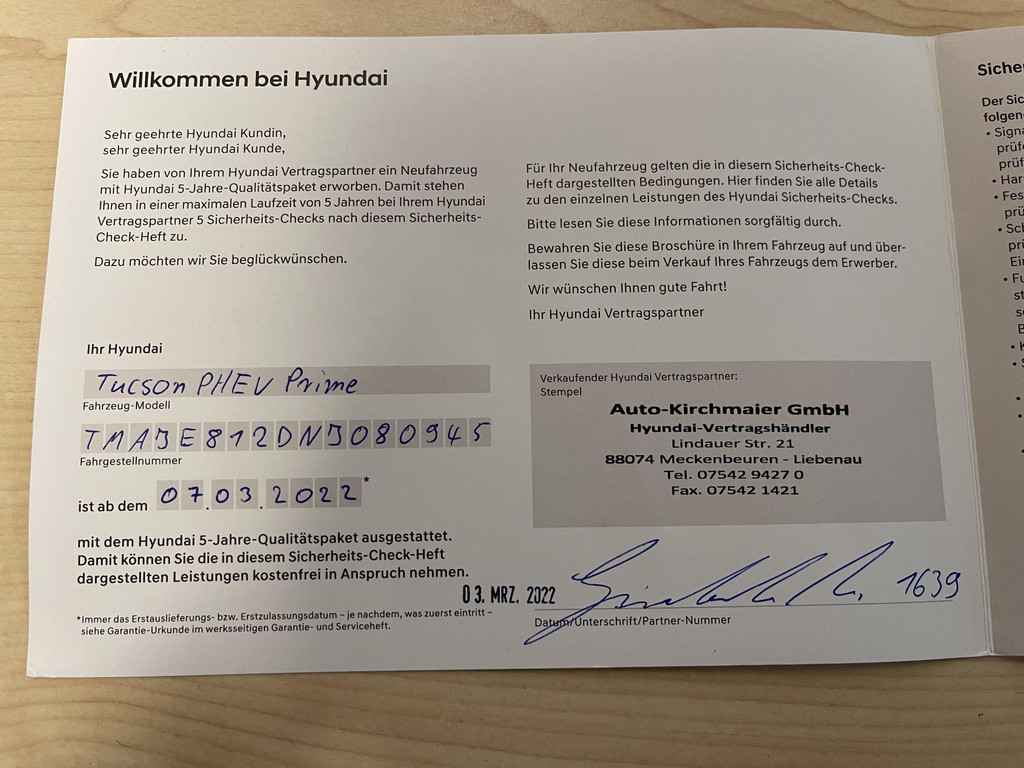 Willkommen bei Hyundai
Sehr geehrte Hyundai Kundin,
sehr geehrter Hyundai Kunde,
Sie haben von Ihrem Hyundai Vertragspartner ein Neufahrzeug
mit Hyundai 5-Jahre-Qualitätspaket erworben. Damit stehen
Ihnen in einer maximalen Laufzeit von 5 Jahren bei Ihrem Hyundai
Vertragspartner 5 Sicherheits-Checks nach diesem Sicherheits-
Check-Heft zu.
Dazu möchten wir Sie beglückwünschen.
Ihr Hyundai
Tucson PHEV Prime
Fahrzeug-Modell
TMAJE812DNJ080945
Fahrgestellnummer
ist ab dem 07.03.2022*
mit dem Hyundai 5-Jahre-Qualitätspaket ausgestattet.
Damit können Sie die in diesem Sicherheits-Check-Heft
dargestellten Leistungen kostenfrei in Anspruch nehmen.
*Immer das Erstauslieferungs- bzw. Erstzulassungsdatum – je nachdem, was zuerst eintritt –
siehe Garantie-Urkunde im werksseitigen Garantie- und Serviceheft.
Für Ihr Neufahrzeug gelten die in diesem Sicherheits-Check-
Heft dargestellten Bedingungen. Hier finden Sie alle Details
zu den einzelnen Leistungen des Hyundai Sicherheits-Checks.
Bitte lesen Sie diese Informationen sorgfältig durch.
Bewahren Sie diese Broschüre in Ihrem Fahrzeug auf und über-
lassen Sie diese beim Verkauf Ihres Fahrzeugs dem Erwerber.
Wir wünschen Ihnen gute Fahrt!
Ihr Hyundai Vertragspartner
Verkaufender Hyundai Vertragspartner:
Stempel
Auto-Kirchmaier GmbH
Hyundai-Vertragshändler
Lindauer Str. 21
88074 Meckenbeuren - Liebenau
Tel. 07542 9427 0
Fax. 07542 1421
03. MRZ. 2022
1639
Datum/Unterschrift/Partner-Nummer
Siche
Der Sic
folgen
• Signa
prüf
prüf
• Har
• Fes
prü
• Sch
prü
Ei
• Fu
st
se
B
• K